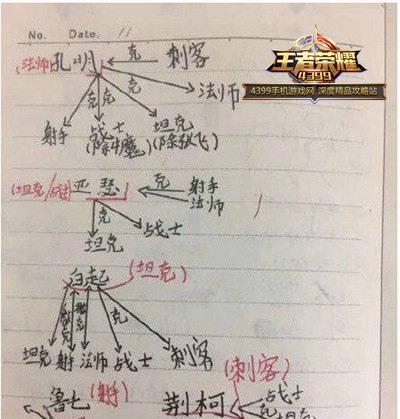 No. Date. 11
王者荣耀
4399
4399手机游戏网 深度精品攻略站
(法师)孔明 克 刺客
克 克
射手 战士 坦克 法师
(除牛魔) (除张飞)
(坦克/战士)亚瑟 克 射手
法师
克
坦克 战士
白起 (坦克)
克
坦克 射手 法师 战士 刺客
鲁七 (射手) 荆柯 (刺客)
战士
坦克